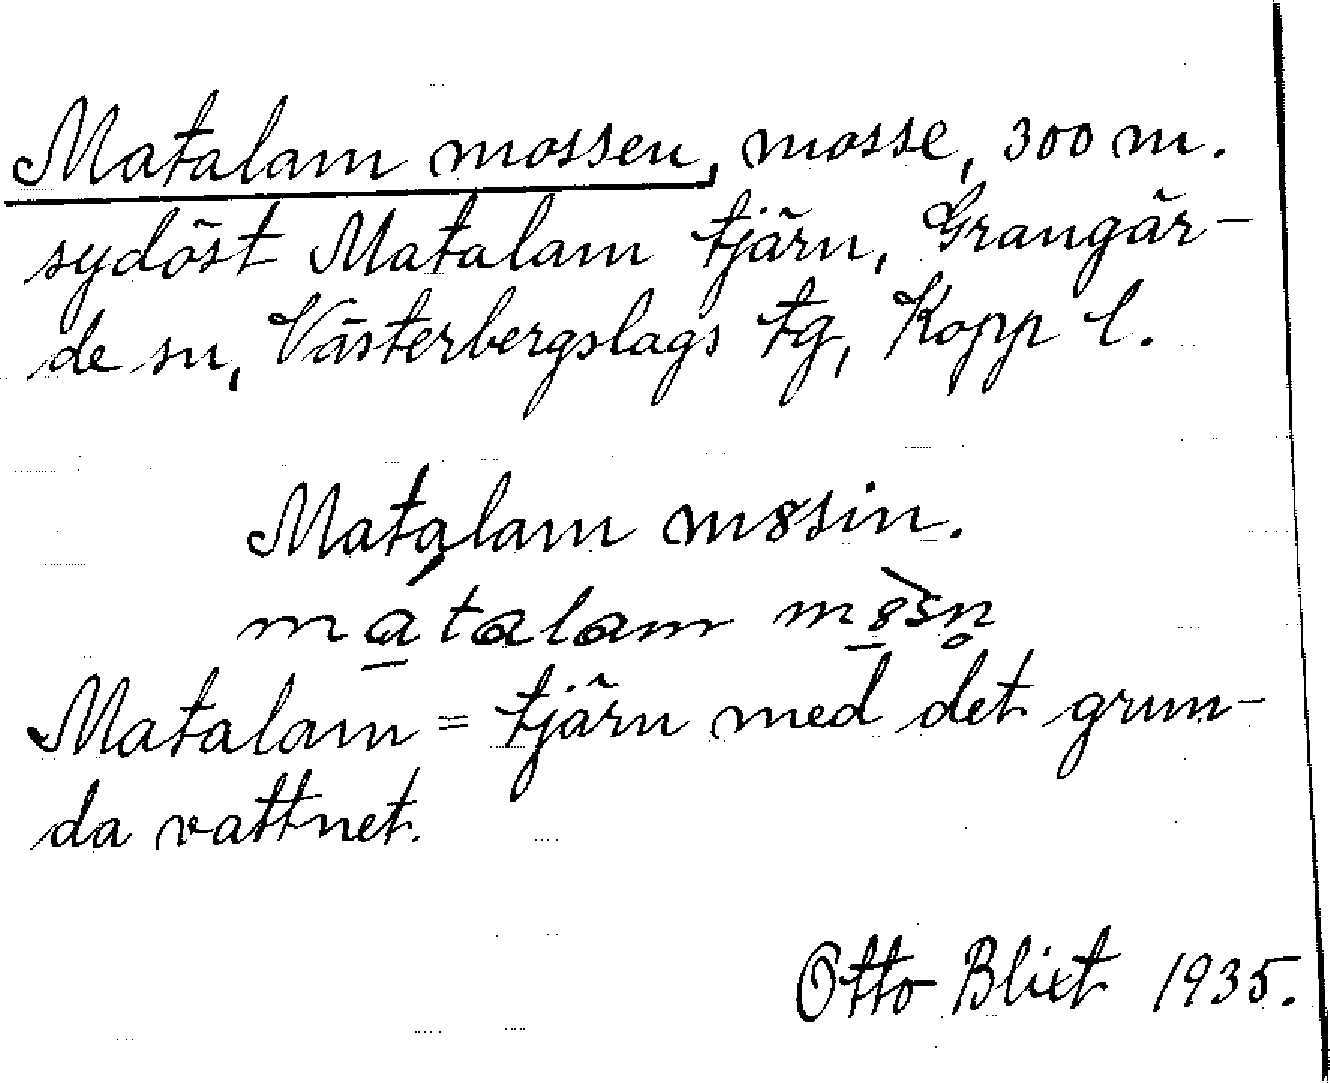 Matalam mossen, mosse, 300 m.
sydöst Matalam tjärn, Grangär-
de sn, Västerbergslags tg, Kopp l.
Matalam m8sin.
mátalam m8̀sn̥
Matalam = tjärn med det grun-
da vattnet.
Otto Blixt 1935.